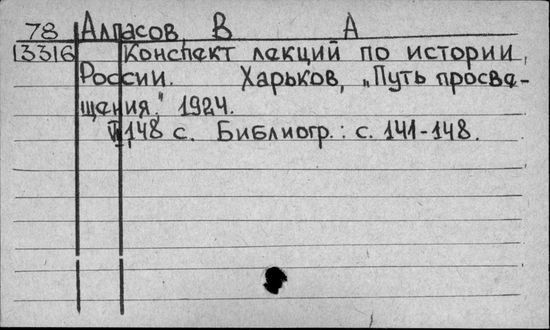 78 Алпасов, В А
13316 Конспект лекций по истории
России. Харьков, „Путь просве-
щения." 1924.
VI, 148 с. Библиогр.: с. 141-148.